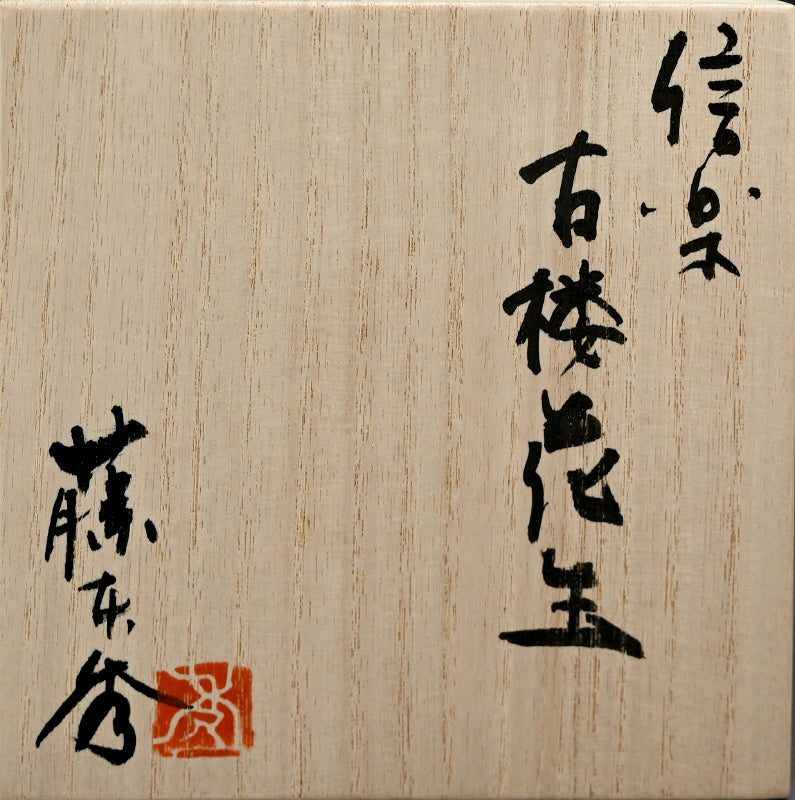 信楽
古楼花生
藤本秀